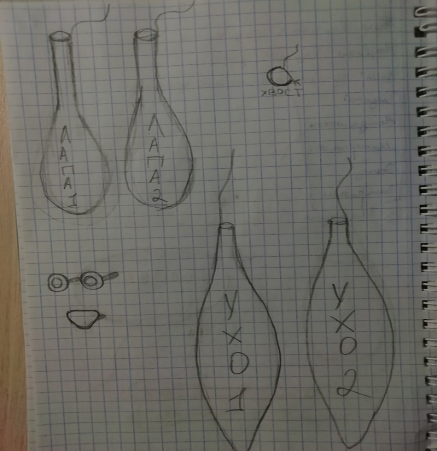 ЛАПА 1
ЛАПА 2
ХВОСТ
УХО 1
УХО 2